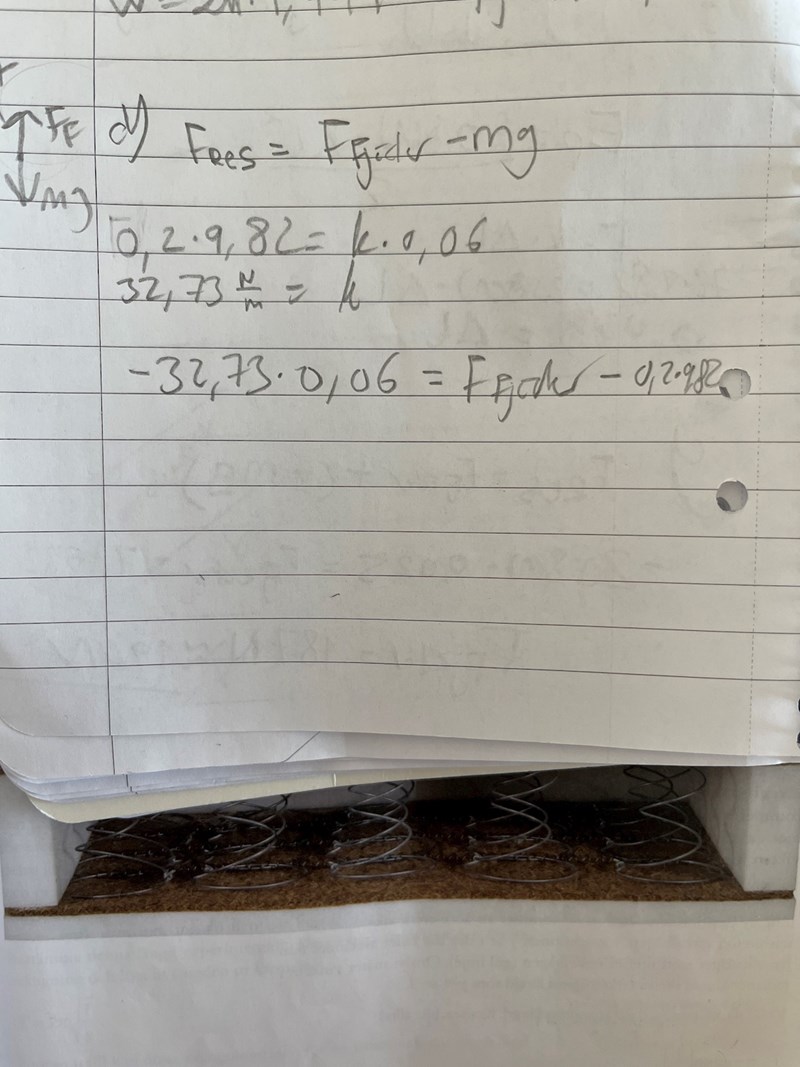 ↑ F_F d) F_Res = F_Fjäder - mg
↓ mg
0,2·9,82 = k·0,06
32,73 N/m = k
-32,73·0,06 = F_Fjäder - 0,2·982